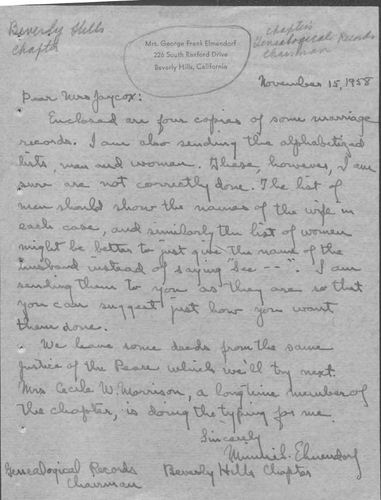 Beverly Hills
Chapter
Chapter's
Genealogical Records
Chairman
Mrs. George Frank Elmendorf
226 South Rexford Drive
Beverly Hills, California
November 15, 1958
Dear Mrs Jaycox:
Enclosed are four copies of some marriage
records. I am also sending the alphabetized
lists, men and women. These, however, I am
sure are not correctly done. The list of
men should show the names of the wife in
each case, and similarly the list of women
might be better to just give the name of the
husband instead of saying "See --". I am
sending them to you as they are so that
you can suggest just how you want
them done.
We have some deeds from the same
Justice of the Peace which we'll try next.
Mrs Cecile W. Morrison, a longtime member of
the chapter, is doing the typing for me.
Sincerely
Elmendorf
Genealogical Records Beverly Hills Chapter
Chairman